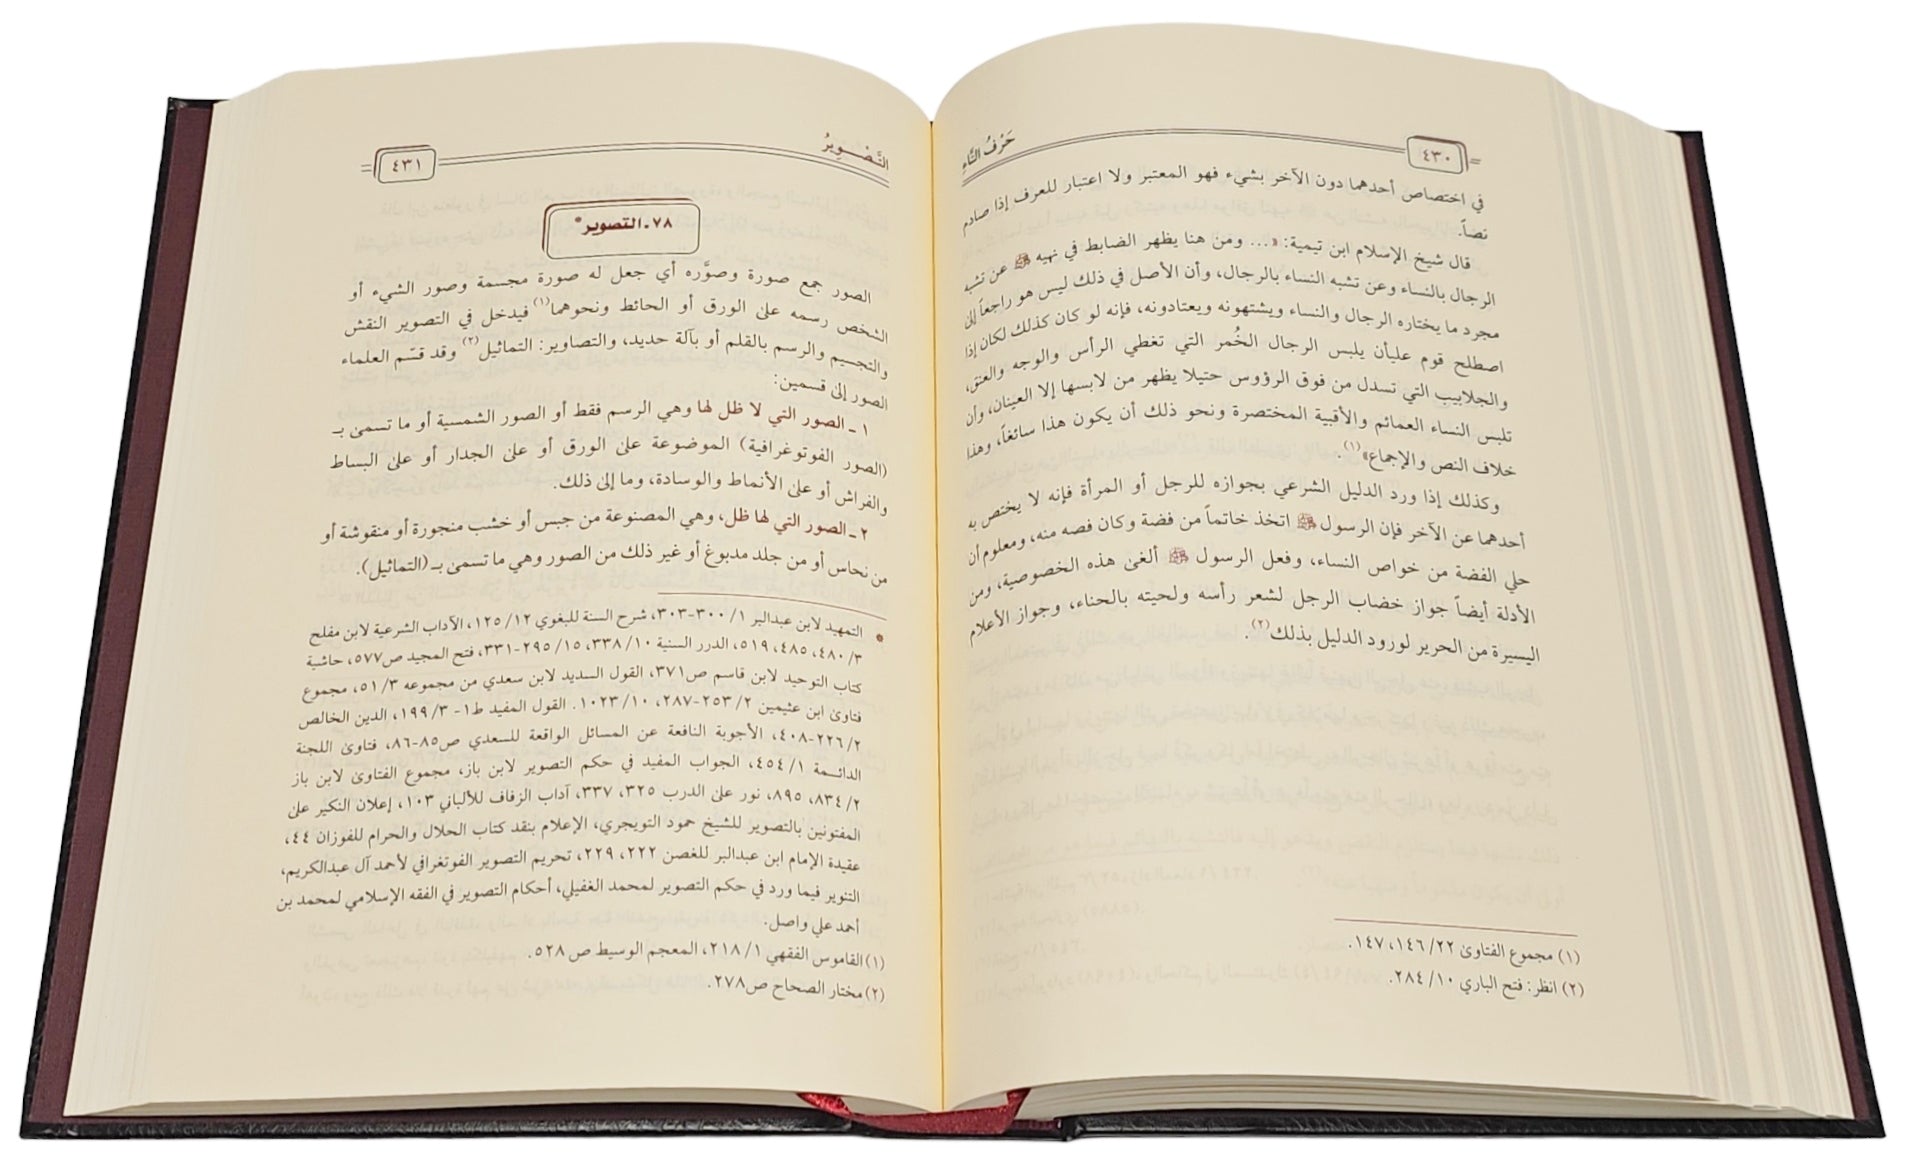 حَرْفُ التَّاءِ
٤٣٠
في اختصاص أحدهما دون الآخر بشيء فهو المعتبر ولا اعتبار للعرف إذا صادم
نصاً.
قال شيخ الإسلام ابن تيمية: «... ومن هنا يظهر الضابط في نهيه ﷺ عن تشبه
الرجال بالنساء وعن تشبه النساء بالرجال، وأن الأصل في ذلك ليس هو راجعاً إلى
مجرد ما يختاره الرجال والنساء ويشتهونه ويعتادونه، فإنه لو كان كذلك لكان إذا
اصطلح قوم علىأن يلبس الرجال الخُمر التي تغطي الرأس والوجه والعنق،
والجلابيب التي تسدل من فوق الرؤوس حتىلا يظهر من لابسها إلا العينان، وأن
تلبس النساء العمائم والأقبية المختصرة ونحو ذلك أن يكون هذا سائغاً، وهذا
خلاف النص والإجماع»(١).
وكذلك إذا ورد الدليل الشرعي بجوازه للرجل أو المرأة فإنه لا يختص به
أحدهما عن الآخر فإن الرسول ﷺ اتخذ خاتماً من فضة وكان فصه منه، ومعلوم أن
حلي الفضة من خواص النساء، وفعل الرسول ﷺ ألغى هذه الخصوصية، ومن
الأدلة أيضاً جواز خضاب الرجل لشعر رأسه ولحيته بالحناء، وجواز الأعلام
اليسيرة من الحرير لورود الدليل بذلك(٢).
(١) مجموع الفتاوى ٢٢/ ١٤٦، ١٤٧.
(٢) انظر: فتح الباري ١٠/ ٢٨٤.
التَّصْوِيرُ
٤٣١
٧٨ـ التصوير*
الصور جمع صورة وصوَّره أي جعل له صورة مجسمة وصور الشيء أو
الشخص رسمه على الورق أو الحائط ونحوهما(١) فيدخل في التصوير النقش
والتجسيم والرسم بالقلم أو بآلة حديد، والتصاوير: التماثيل(٢) وقد قسّم العلماء
الصور إلى قسمين:
١ ـ الصور التي لا ظل لها وهي الرسم فقط أو الصور الشمسية أو ما تسمى بـ
(الصور الفوتوغرافية) الموضوعة على الورق أو على الجدار أو على البساط
والفراش أو على الأنماط والوسادة، وما إلى ذلك.
٢ ـ الصور التي لها ظل، وهي المصنوعة من جبس أو خشب منجورة أو منقوشة أو
من نحاس أو من جلد مدبوغ أو غير ذلك من الصور وهي ما تسمى بـ (التماثيل).
* التمهيد لابن عبدالبر ١/ ٣٠٠-٣٠٣، شرح السنة للبغوي ١٢/ ١٢٥، الآداب الشرعية لابن مفلح
٣/ ٤٨٠، ٤٨٥، ٥١٩، الدرر السنية ١٠/ ٣٣٨، ١٥/ ٢٩٥-٣٣١، فتح المجيد ص٥٧٧، حاشية
كتاب التوحيد لابن قاسم ص٣٧١، القول السديد لابن سعدي من مجموعه ٣/ ٥١، مجموع
فتاوى ابن عثيمين ٢/ ٢٥٣-٢٨٧، ١٠/ ١٠٢٣. القول المفيد ط١- ٣/ ١٩٩، الدين الخالص
٢/ ٢٢٦-٤٠٨، الأجوبة النافعة عن المسائل الواقعة للسعدي ص٨٥-٨٦، فتاوى اللجنة
الدائمة ١/ ٤٥٤، الجواب المفيد في حكم التصوير لابن باز، مجموع الفتاوى لابن باز
٢/ ٨٣٤، ٨٩٥، نور على الدرب ٣٢٥، ٣٣٧، آداب الزفاف للألباني ١٠٣، إعلان النكير على
المفتونين بالتصوير للشيخ حمود التويجري، الإعلام بنقد كتاب الحلال والحرام للفوزان ٤٤،
عقيدة الإمام ابن عبدالبر للغصن ٢٢٢، ٢٢٩، تحريم التصوير الفوتغرافي لأحمد آل عبدالكريم،
التنوير فيما ورد في حكم التصوير لمحمد الغفيلي، أحكام التصوير في الفقه الإسلامي لمحمد بن
أحمد علي واصل.
(١) القاموس الفقهي ١/ ٢١٨، المعجم الوسيط ص ٥٢٨.
(٢) مختار الصحاح ص٢٧٨.